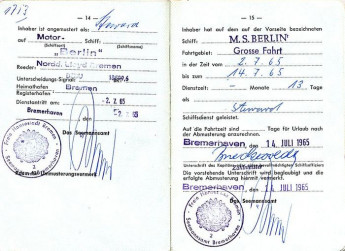 1713
— 14 —
Inhaber ist angemustert als: Steward
auf Motor- Schiff:
(Schiffsart) (Schiffsname)
"Berlin"
Reeder: Nordd. Lloyd Bremen
Unterscheidungs-Signal:
Heimathafen Bremen
Registerhafen
Dienstantritt am: -2.7.65
Bremerhaven, den -2.7.65
Das Seemannsamt
— 15 —
Inhaber hat auf dem auf der Vorseite bezeichneten
Schiff, M.S. BERLIN"
Fahrtgebiet: Grosse Fahrt
in der Zeit vom 2.7.65
bis 14.7.65
Dienstzeit: — Monate 13 Tage
als Steward
Schiffsdienst geleistet.
Auf die Fahrtzeit sind Tage für Urlaub nach
der Abmusterung anzurechnen.
Bremerhaven, den 14. JULI 1965
Die vorstehende Unterschrift wird beglaubigt und die
erfolgte Abmusterung hiermit vermerkt.
Bremerhaven, den 14. JULI 1965
Das Seemannsamt
Freie Hansestadt Bremen
Seemannsamt Bremerhaven